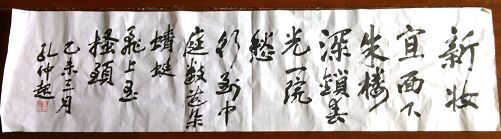 新妝
宜面下
朱楼
深鎖春
光一院
愁
行到中
庭数花朵
蜻蜓
飞上玉
搔頭
乙未三月
孔仲起